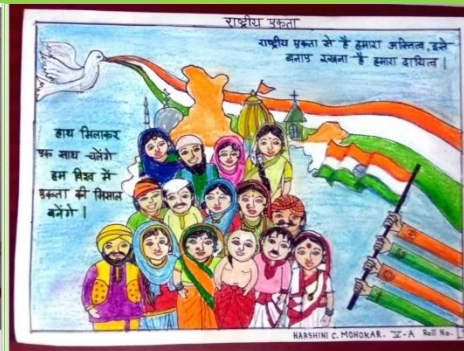 राष्ट्रीय एकता
राष्ट्रीय एकता से है हमारा अस्तित्व, इसे
बनाए रखना है हमारा दायित्व |
हाथ मिलाकर
एक साथ चलेंगे
हम विश्व में
एकता की मिसाल
बनेंगे |
HARSHINI C. MOHOKAR. V-A Roll No.